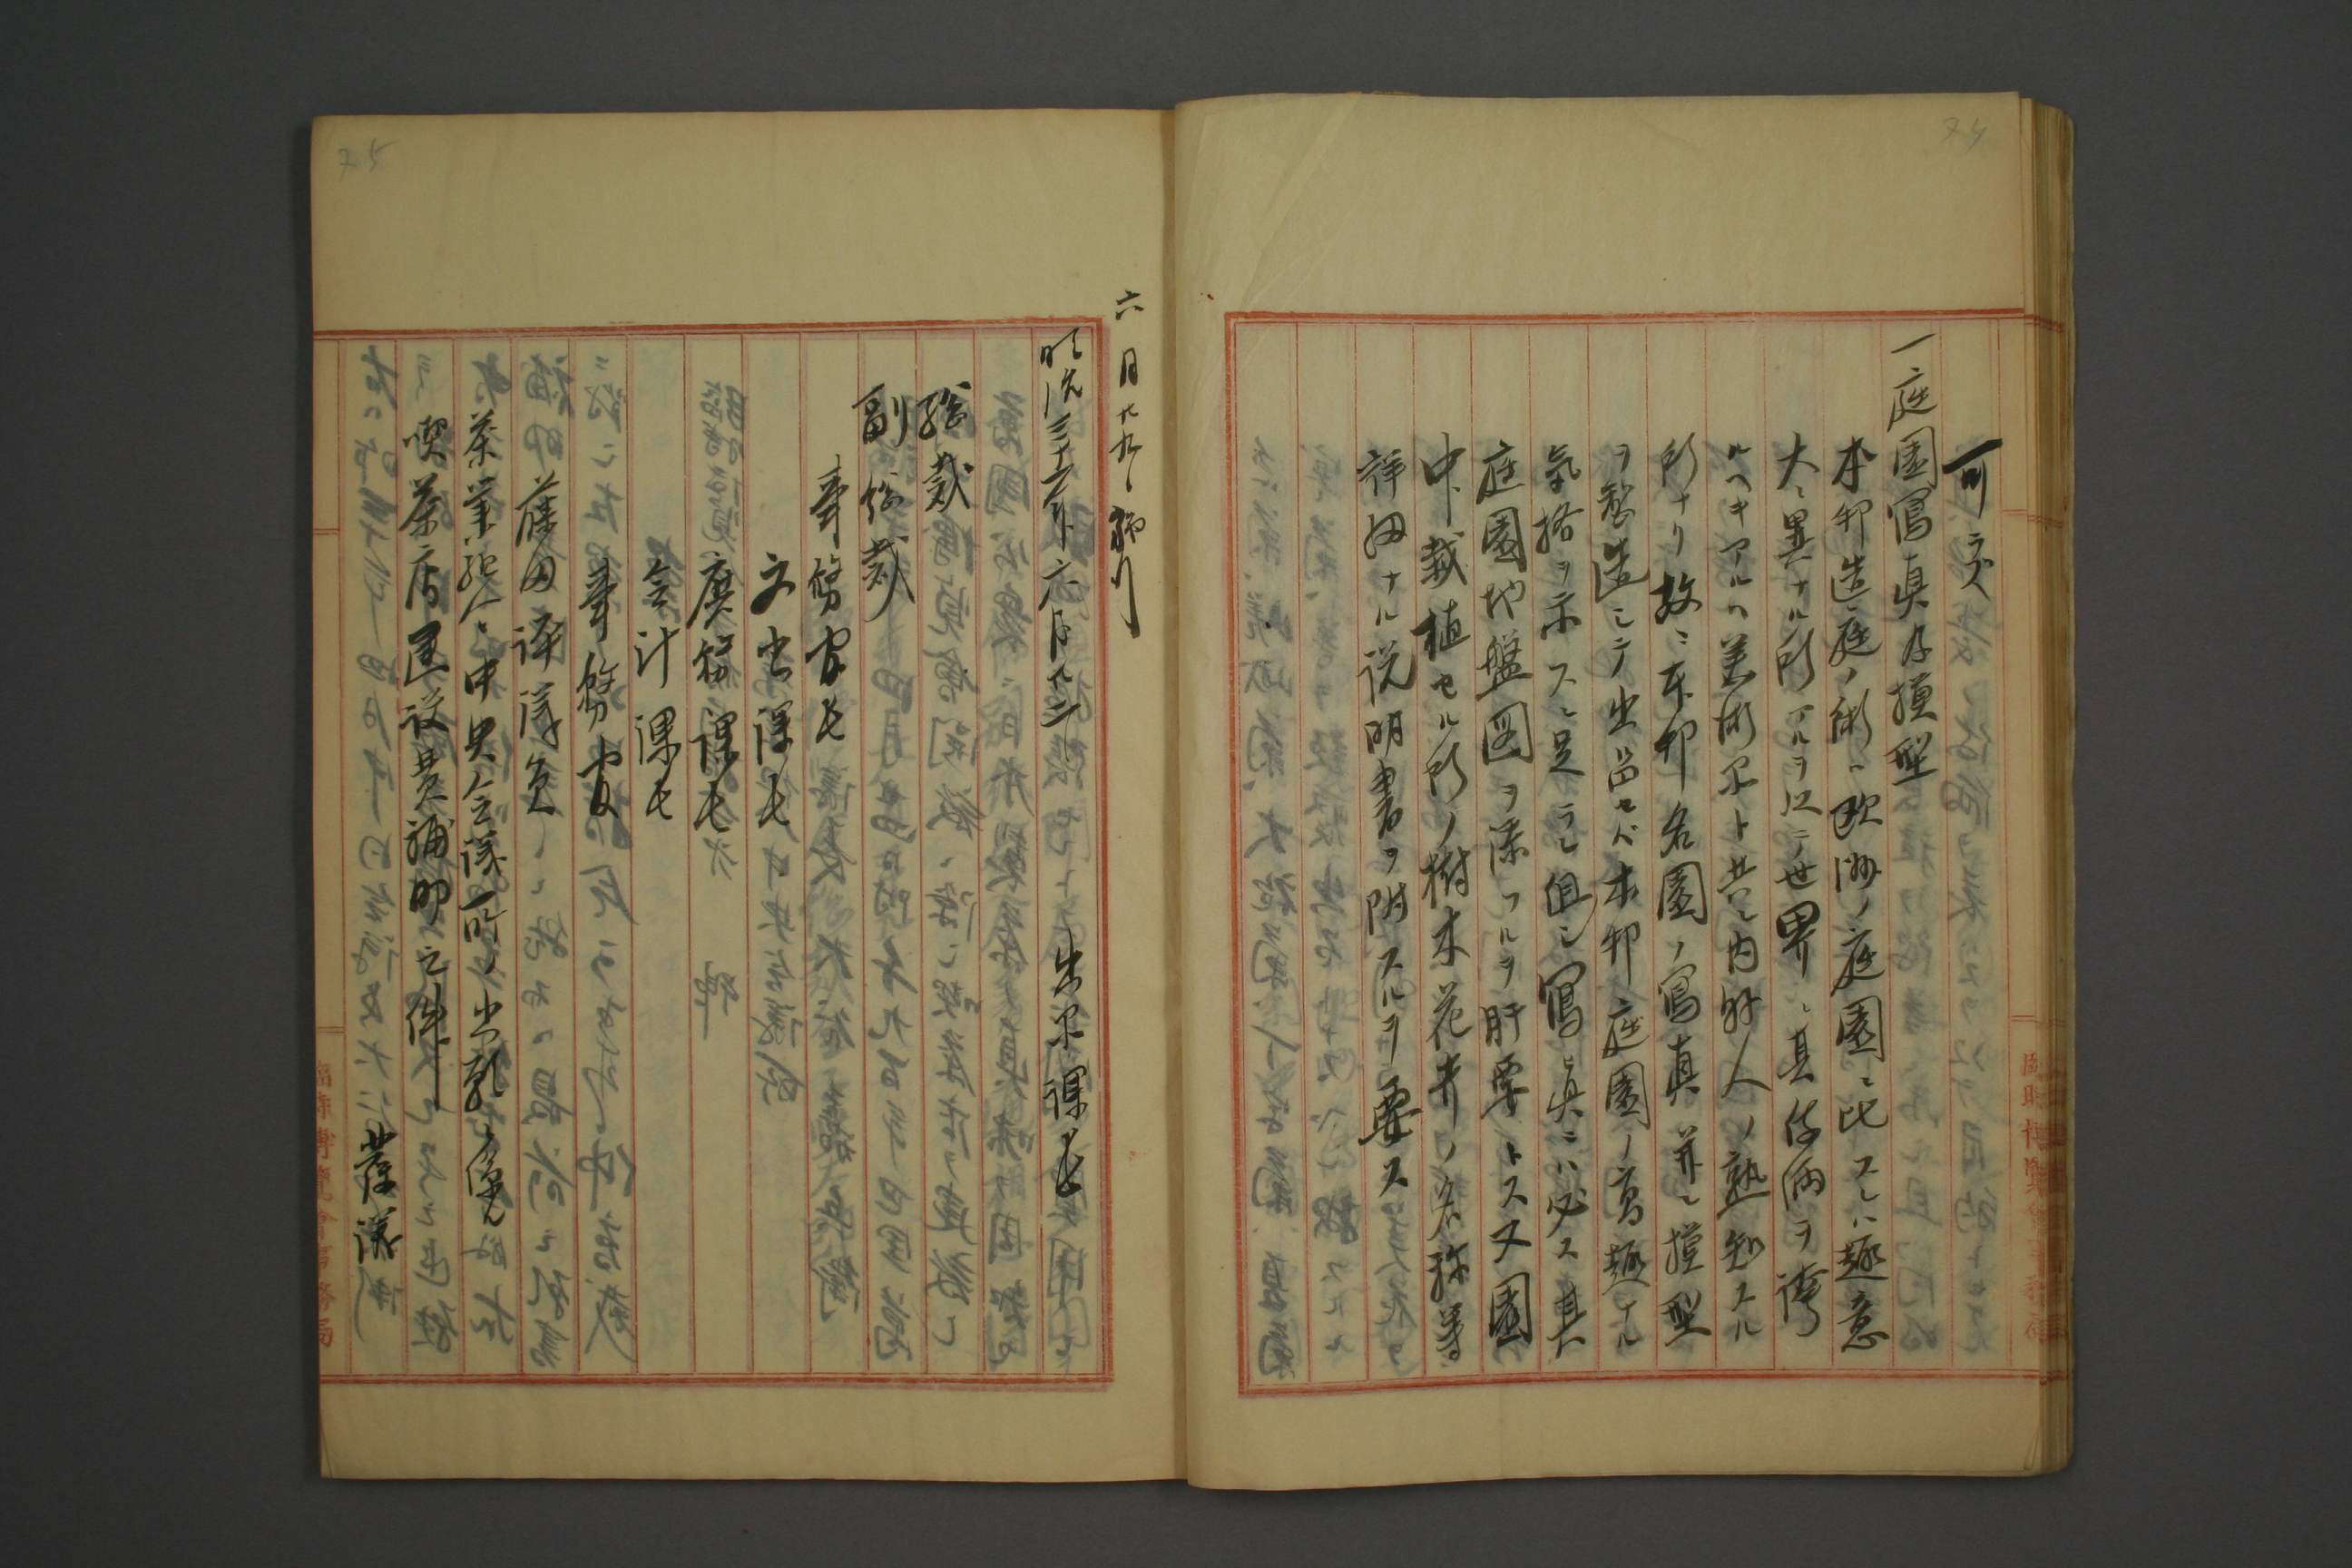 可ラズ
一庭園寫真及摸型
本邦造庭ノ術ハ歐洲ノ庭園ニ比スレハ趣意
大ニ異ナル所アルヲ以テ世界ニ其伎倆ヲ誇
ルヘキアルハ美術家ト共ニ内外人ノ熟知スル
所ナリ故ニ本邦名園ノ寫真并ニ摸型
ヲ製造シテ出品セバ本邦庭園ノ高趣ナル
氣格ヲ示スニ足ラン但シ寫真ニハ必ス其
庭園地盤図ヲ添フルヲ肝要トス又園
中栽植セル所ノ樹木花卉ノ名称等
詳細ナル説明書ヲ附スルヲ要ス
六月廿九日
明治三十二年六月廿二日
課長
総裁
副総裁
事務官長
文書課長
庶務課長
会計課長
事務官
藤田評議員
茶業組合中央会議所ノ出願ニ係ル
喫茶店建設費補助之件
臨時博覧會事務局